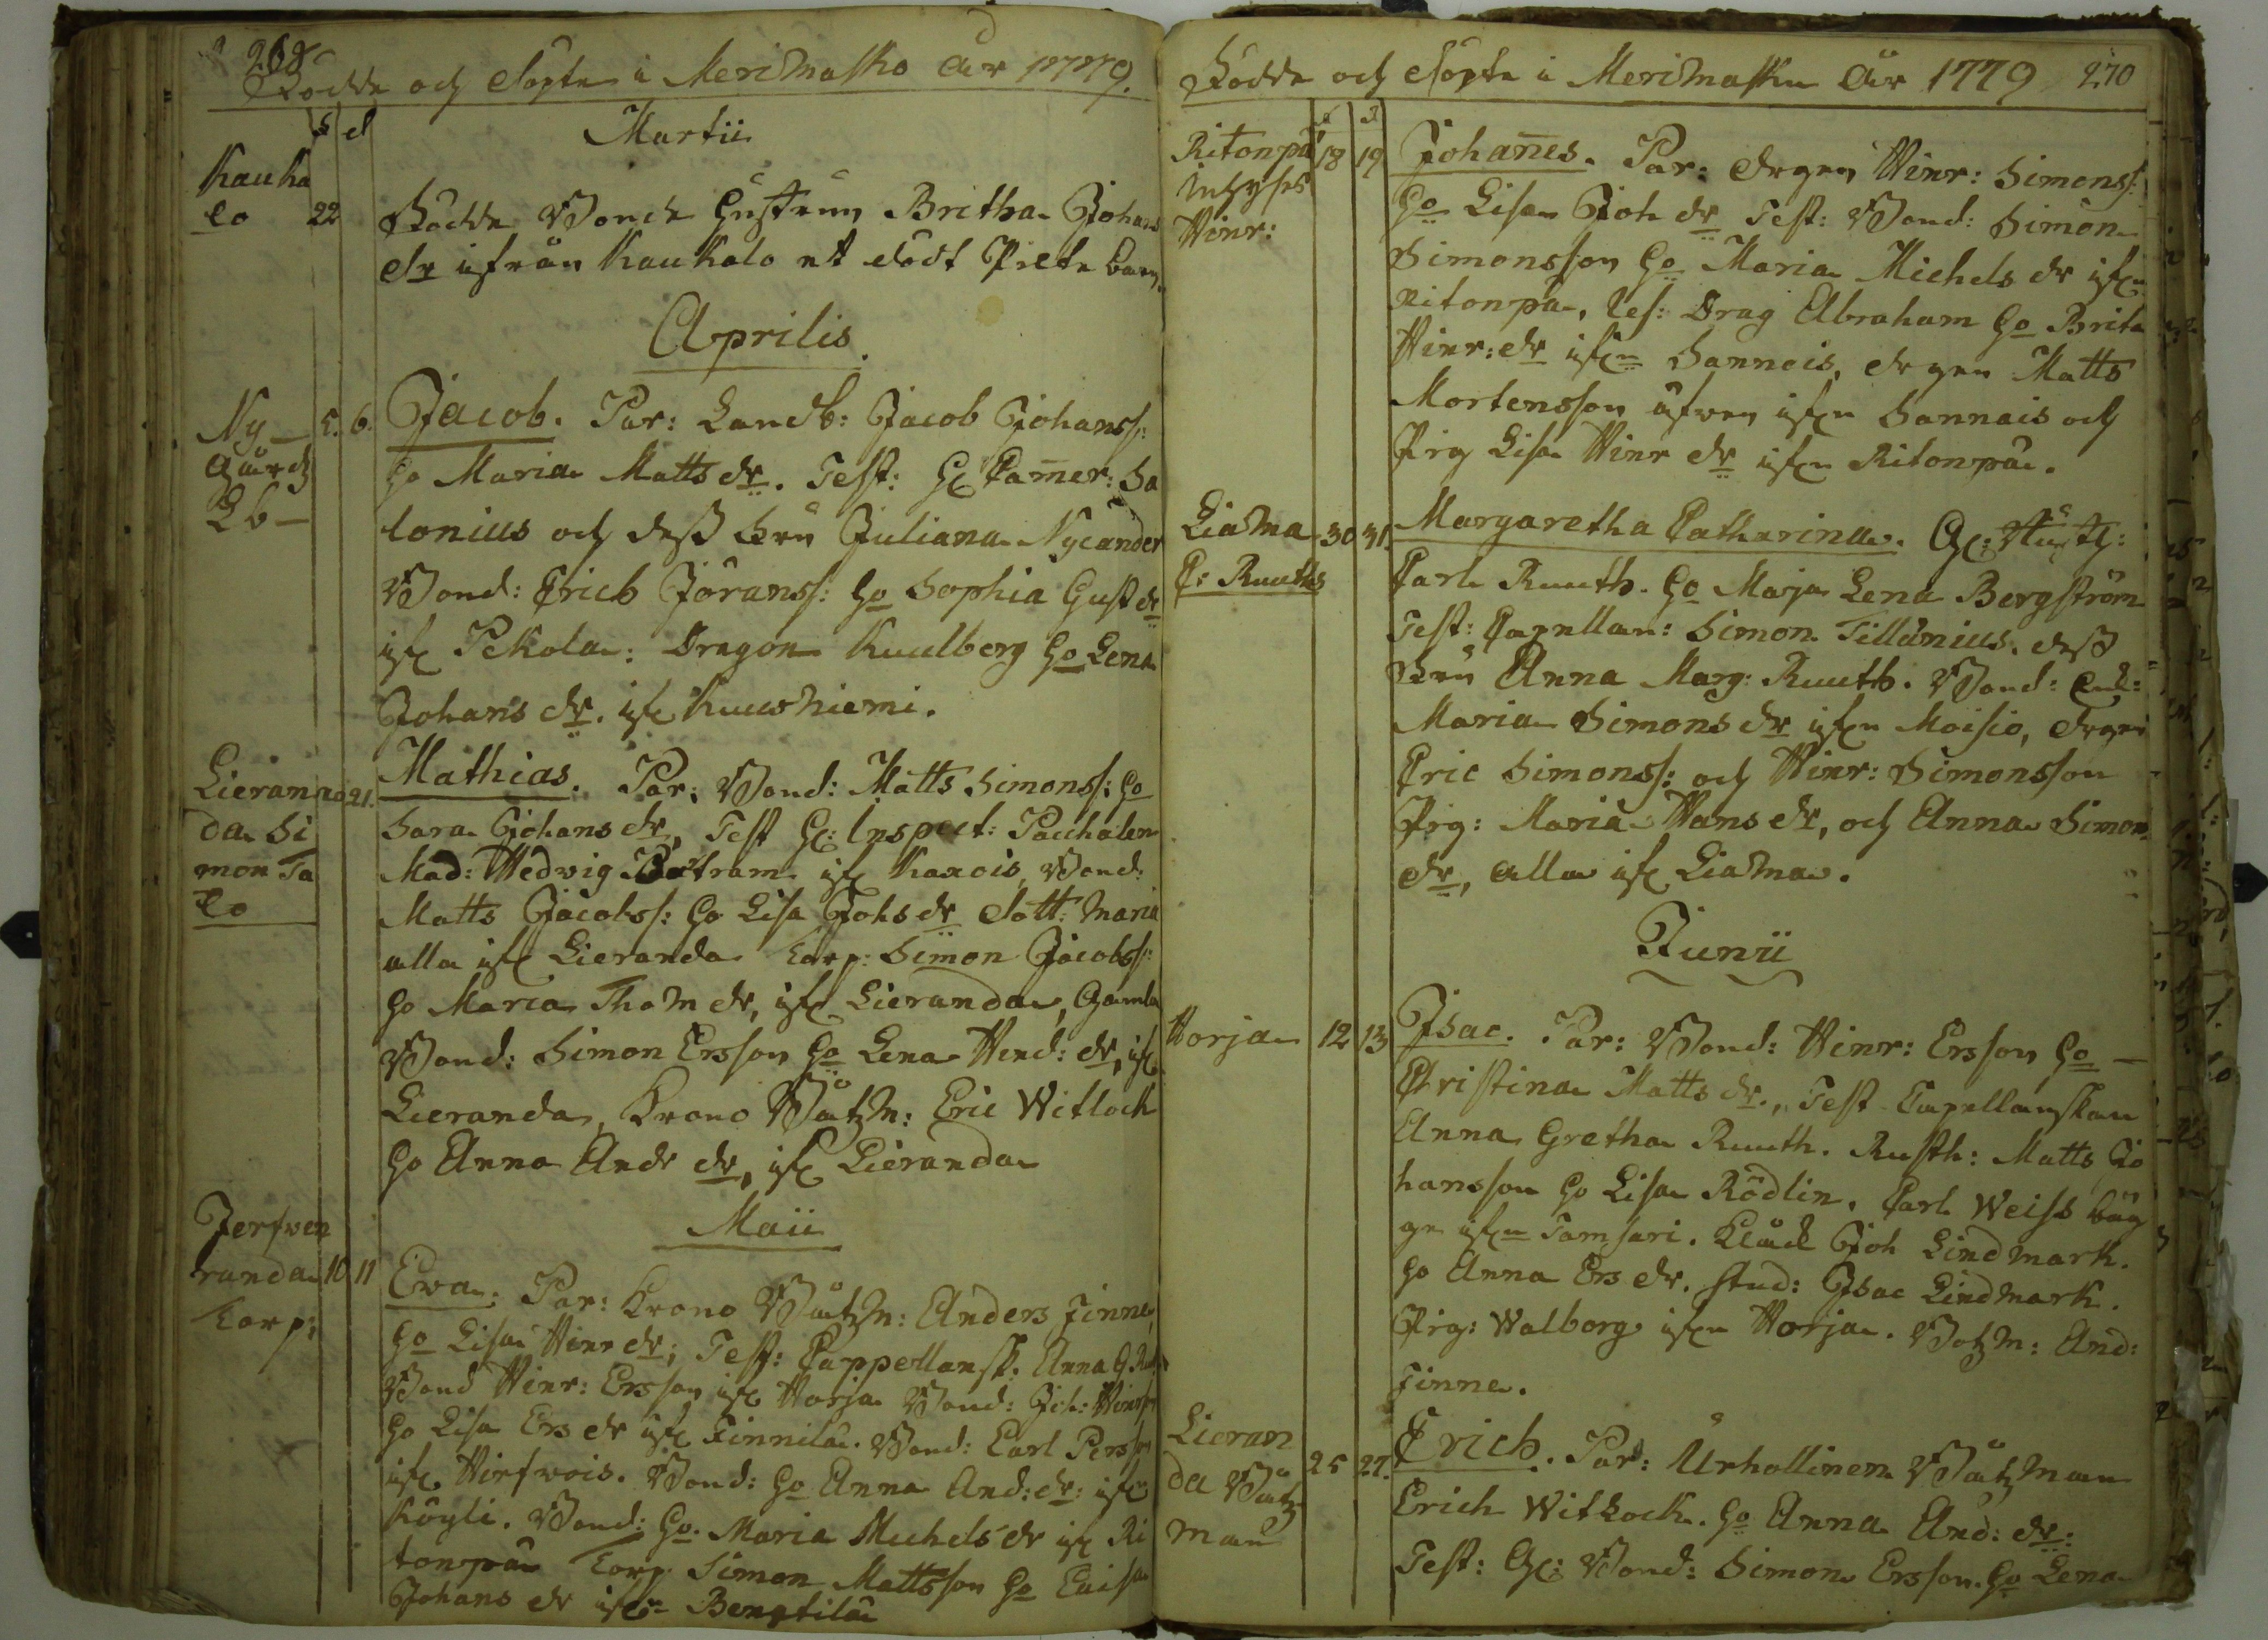 268
Födde och Döpte i Merimasko år 1779.
f d
Martii
Kauka
lo 22 Födde Bonde hustrun Britha Johans
dr ifrån Kaukalo et dödt Picke barn.
Aprilis
Ny- 5. 6. Jacob. Par: Landb: Jacob Johanss:
Gård Ho Maria Matts dr. Test: H Camer: Sa
Lb- lonius och dess Fru Juliana Nycander
Bond: Erich Jöranss: Ho Sophia Gust dr
ifr Pekola: Dragon Kuulberg Ho Lena
Johans dr. ifr Kuusniemi.
Lieran 20 21. Mathias. Par: Bond: Matts Simonss: Ho
da Si Sara Johans dr, Test H: Inspect: Pacchalen
mon Ta Mad: Hedvig ifr Kaxois, Bond:
lo Matts Jacobss: Ho Lisa Johs dr Dott: Maria
alla ifr Lieranda Torp: Simon Jacobss:
Ho Maria Thom dr, ifr Lieranda, Gamla
Bond: Simon Ersson Ho Lena Hend: dr, ifr
Lieranda, Krono Båtzm: Eric Witlock
Ho Anna Andr dr, ifr Lieranda
Maii
Jerfwen
randa 10 11 Ewa. Par: Krono Båtzm: Anders Finne,
Torp: Ho Lisa Hinr dr; Test: Cappellansk: Anna G. R
Bond Hinr: Ersson ifr Horja Bond: Joh: Hinrss
Ho Lisa Ers dr ifr Finnilä. Bond: Carl Persson
ifr Hirfwois. Bond: Ho Anna And: dr: ifrn
Köyli. Bond: Ho. Maria Michels dr ifr Ri
tonpä Torp. Simon Mattsson Ho Caisa
Johans dr ifrn Bengtilä
Födde och Döpte i Merimasku År 1779 270
f d
Ritonpä 18 19 Johañes. Par: Drgen Hinr: Simonss:
Inhyses Ho Lisa Joh dr Test: Bond: Simon
Hinr: Simonsson Ho Maria Michels dr ifrn
Ritonpä, Ref: Drag Abraham Ho Brita
Hinr: dr ifrn Sannais, Drgen Matts
Mortensson äfwen ifrn Sannais och
Pig Lisa Hinr dr ifrn Ritonpä.
Liadma 30 31. Margaretha Catharina. H:
C: Ruuths Carl Ruuth. Ho Maja Lena Bergström
Test: Capellan: Simon Tillänius. dess
Fru Anna Marg: Ruuth. Bond: Enk:
Maria Simons dr ifrn Moisio, Drgen
Eric Simonss: och Hinr: Simonsson
Pig: Maria Hans dr, och Anna Simon
dr, alla ifr Liadma.
Junii
Horja 12 13 Isac. Par: Bond: Hinr: Ersson Ho -
Christina Matts dr., Test Capellanskan
Anna Gretha Ruuth. Rusth: Matts Jo
hansson Ho Lisa Rödlin. Carl Weiss båg
ge ifrn Tamsari. Klåck Joh Lindmark.
Ho Anna Ers dr. Stud: Isac Lindmark.
Pig: Walborg ifrn Horja. Botzm: And:
Finne.
Lieran
da Båtz 25 27. Erich. Par: Urhollinen Båtzman
man Erich Witkock. Ho Anna And: dr:
Test: H: Bond: Simon Ersson. Ho Lena